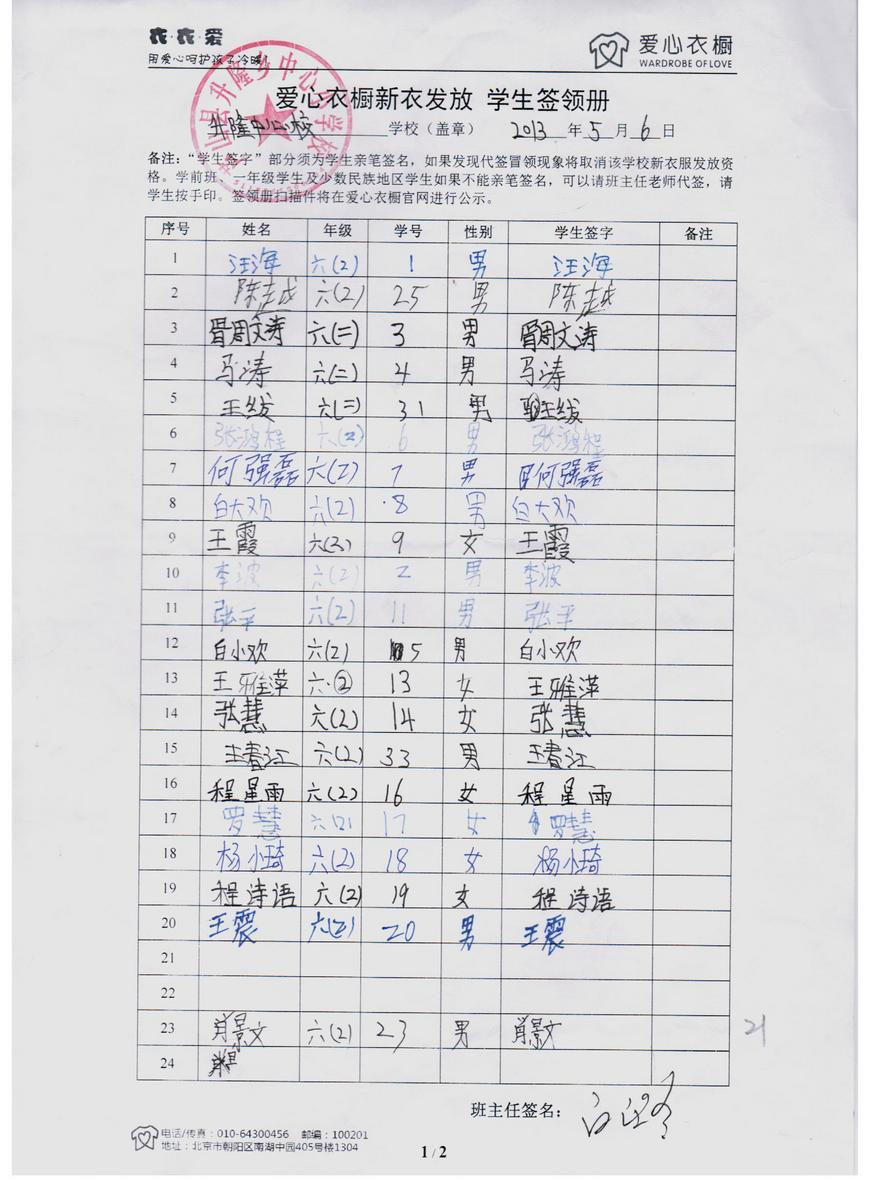 衣·衣·爱
用爱心呵护孩子冷暖!
爱心衣橱
WARDROBE OF LOVE
爱心衣橱新衣发放 学生签领册
升隆中心校 学校（盖章） 2013 年 5 月 6 日
备注：“学生签字”部分须为学生亲笔签名，如果发现代签冒领现象将取消该学校新衣服发放资
格。学前班、一年级学生及少数民族地区学生如果不能亲笔签名，可以请班主任老师代签，请
学生按手印。签领册扫描件将在爱心衣橱官网进行公示。
序号 姓名 年级 学号 性别 学生签字 备注
1 汪海 六(2) 1 男 汪海
2 陈志成 六(2) 25 男 陈
3 周文涛 六(二) 3 男 周文涛
4 马涛 六(二) 4 男 马涛
5 王 六(二) 31 男 王
6 张鸿程 六(2) 6 男 张鸿程
7 何强磊 六(2) 7 男 何强磊
8 白大欢 六(2) 8 男 白大欢
9 王霞 六(2) 9 女 王霞
10 李波 六(2) 2 男 李波
11 张平 六(2) 11 男 张平
12 白小欢 六(2) 5 男 白小欢
13 王雅萍 六② 13 女 王雅萍
14 张慧 六(2) 14 女 张慧
15 王春江 六(2) 33 男 王春江
16 程星雨 六(2) 16 女 程星雨
17 罗慧 六(2) 17 女 罗慧
18 杨小琦 六(2) 18 女 杨小琦
19 程诗语 六(2) 19 女 程诗语
20 王震 六(2) 20 男 王震
21
22
23 肖景文 六(2) 23 男 肖景文
21
24
班主任签名：
电话/传真：010-64300456 邮编：100201
地址：北京市朝阳区南湖中园405号楼1304
1 / 2